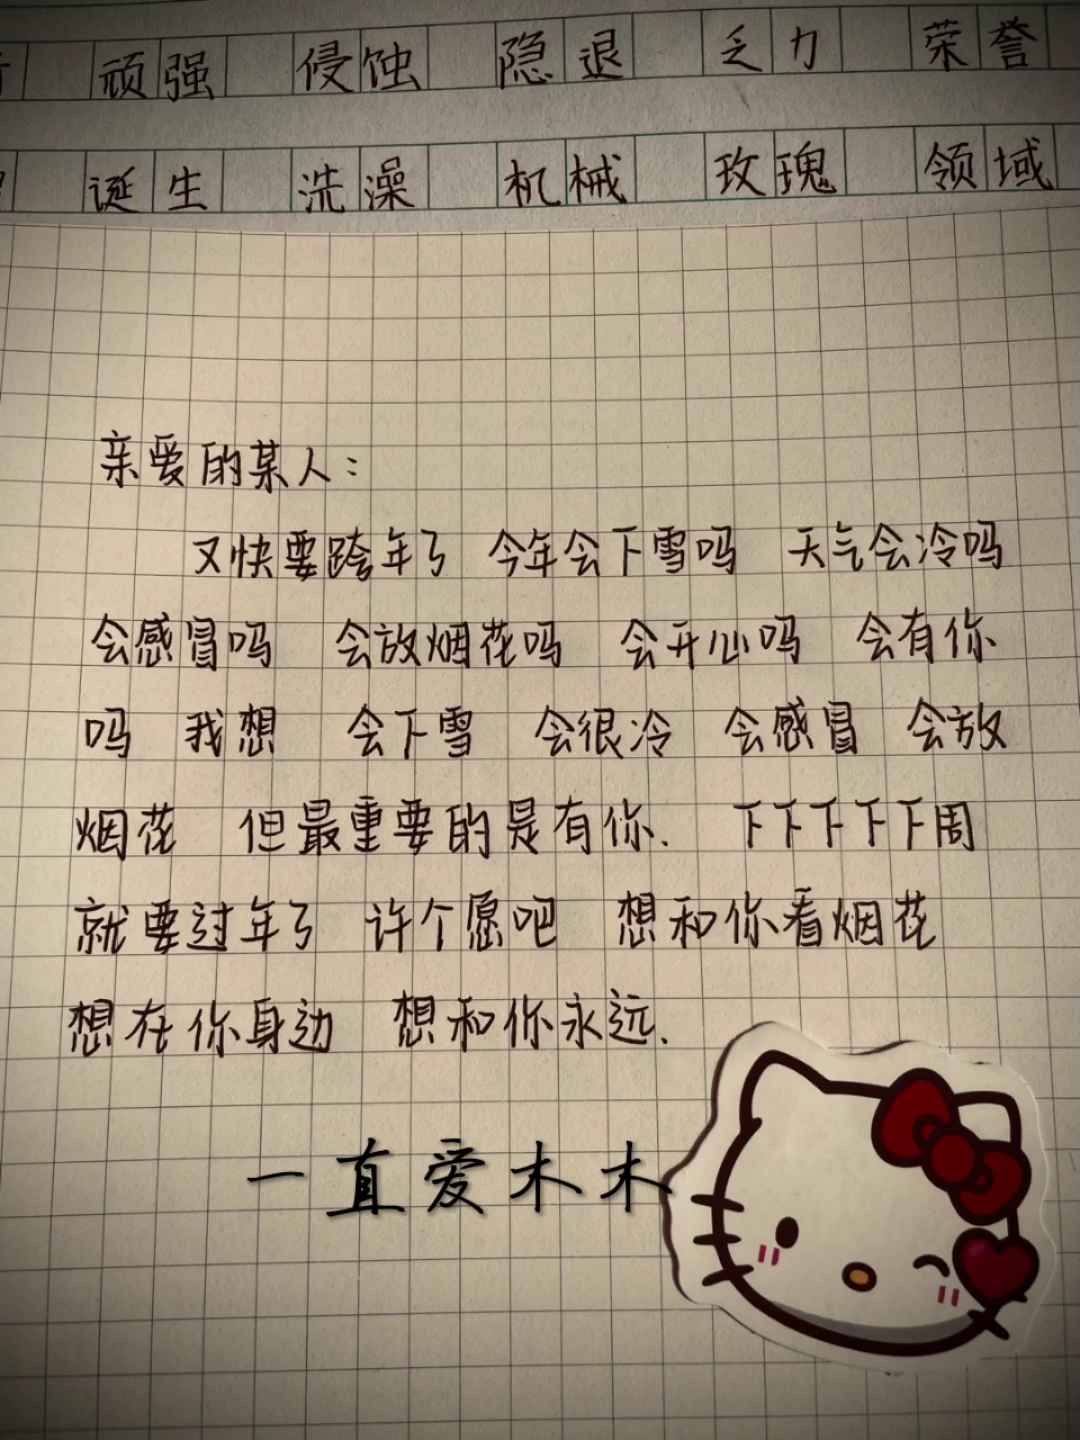 顽强 侵蚀 隐退 乏力 荣誉
诞生 洗澡 机械 玫瑰 领域
亲爱的某人：
又快要跨年了 今年会下雪吗 天气会冷吗
会感冒吗 会放烟花吗 会开心吗 会有你
吗 我想 会下雪 会很冷 会感冒 会放
烟花 但最重要的是有你. 下下下下下周
就要过年了 许个愿吧 想和你看烟花
想在你身边 想和你永远.
一直爱木木